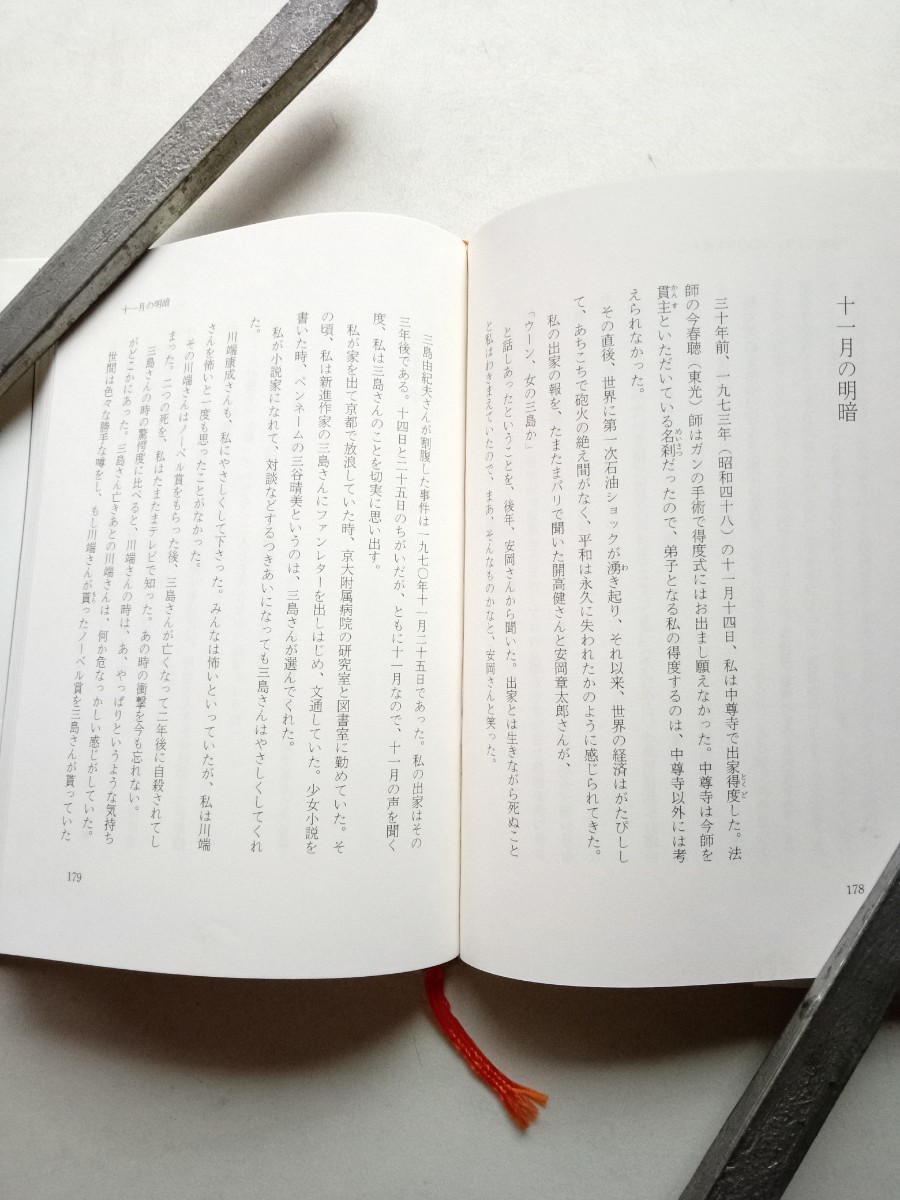 十一月の明暗
三十年前、一九七三年(昭和四十八)の十一月十四日、私は中尊寺で出家得度した。法
師の今春聴(東光)師はガンの手術で得度式にはお出まし願えなかった。中尊寺は今師を
貫主といただいている名刹だったので、弟子となる私の得度するのは、中尊寺以外には考
えられなかった。
その直後、世界に第一次石油ショックが湧き起り、それ以来、世界の経済はがたぴしし
て、あちこちで砲火の絶え間がなく、平和は永久に失われたかのように感じられてきた。
私の出家の報を、たまたまパリで聞いた開高健さんと安岡章太郎さんが、
「ウーン、女の三島か」
と話しあったということを、後年、安岡さんから聞いた。出家とは生きながら死ぬこと
と私はわきまえていたので、まあ、そんなものかなと、安岡さんと笑った。
178
十一月の明暗
三島由紀夫さんが割腹した事件は一九七〇年十一月二十五日であった。私の出家はその
三年後である。十四日と二十五日のちがいだが、ともに十一月なので、十一月の声を聞く
度、私は三島さんのことを切実に思い出す。
私が家を出て京都で放浪していた時、京大附属病院の研究室と図書室に勤めていた。そ
の頃、私は新進作家の三島さんにファンレターを出しはじめ、文通していた。少女小説を
書いた時、ペンネームの三谷晴美というのは、三島さんが選んでくれた。
私が小説家になれて、対談などするつきあいになっても三島さんはやさしくしてくれ
た。
川端康成さんも、私にやさしくして下さった。みんなは怖いといっていたが、私は川端
さんを怖いと一度も思ったことがなかった。
その川端さんはノーベル賞をもらった後、三島さんが亡くなって二年後に自殺されてし
まった。二つの死を、私はたまたまテレビで知った。あの時の衝撃を今も忘れない。
三島さんの時の驚愕度に比べると、川端さんの時は、あ、やっぱりというような気持ち
がどこかにあった。三島さん亡きあとの川端さんは、何か危なっかしい感じがしていた。
世間は色々な勝手な噂をし、もし川端さんが貰ったノーベル賞を三島さんが貰っていた
179